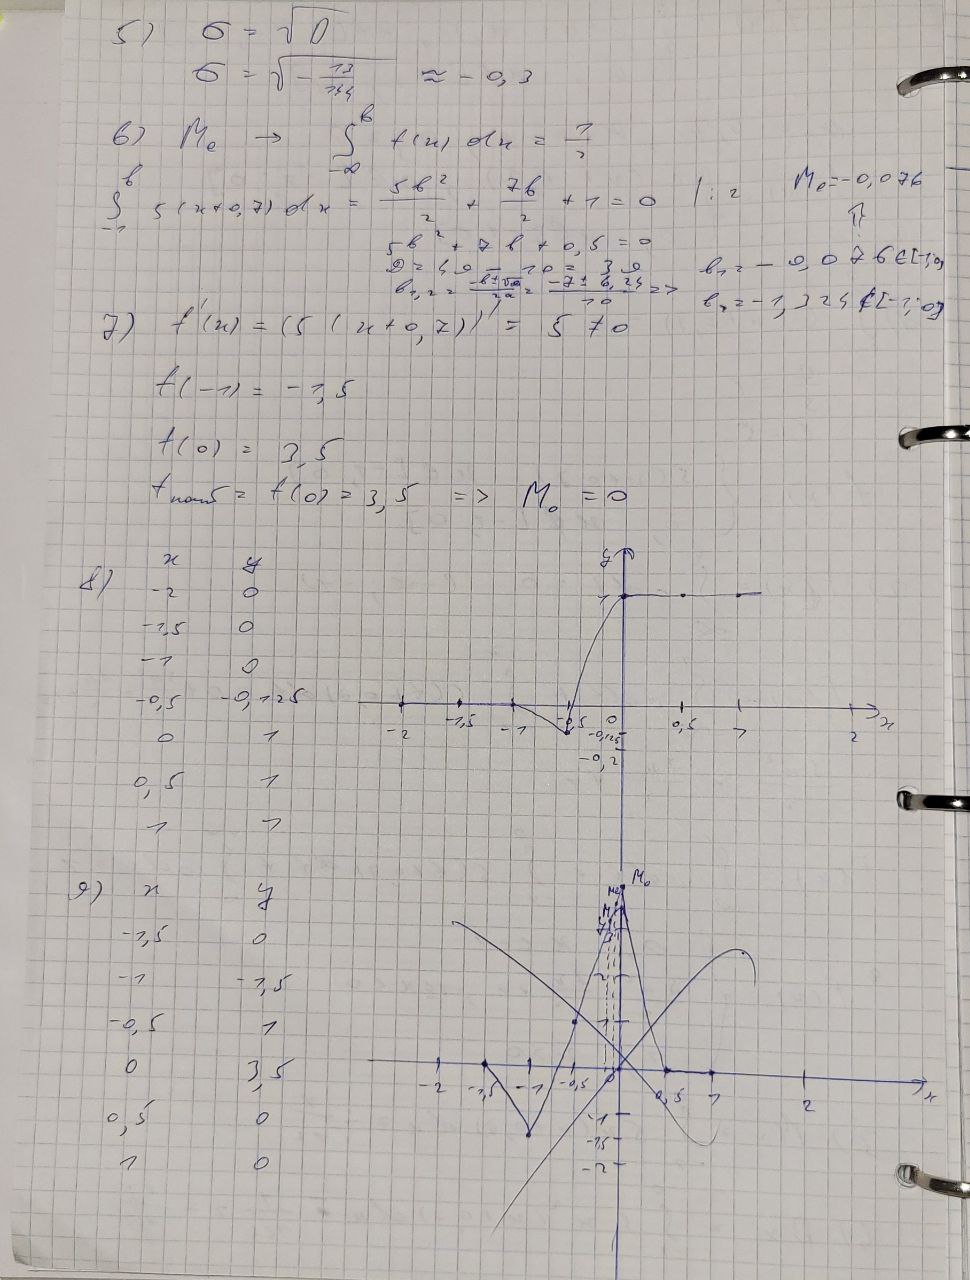 5) σ = √D
σ = √(-13/144) ≈ -0,3
6) Me → ∫_{-∞}^{b} f(x) dx = 1/2
∫_{-1}^{b} 5(x+0,7) dx = 5b²/2 + 7b/2 + 1 = 0 |:2 Me=-0,076
5b² + 7b + 0,5 = 0
D = 49 - 10 = 39 b₁ = -0,076 ∈ [-1;0]
b₁,₂ = (-b±√D)/2a = (-7 ± 6,24)/10 => b₂ = -1,324 ∉ [-1;0]
7) f'(x) = (5(x+0,7))' = 5 ≠ 0
f(-1) = -1,5
f(0) = 3,5
fнаиб = f(0) = 3,5 => M₀ = 0
8) x y
-2 0
-1,5 0
-1 0
-0,5 -0,125
0 1
0,5 1
1 1
y
1
-2 -1,5 -1 -0,5 0 0,5 1 2 x
-0,125
-0,2
9) x y
-1,5 0
-1 -1,5
-0,5 1
0 3,5
0,5 0
1 0
M₀
Me
M
1
-2 -1,5 -1 -0,5 0 0,5 1 2 x
-1
-1,5
-2